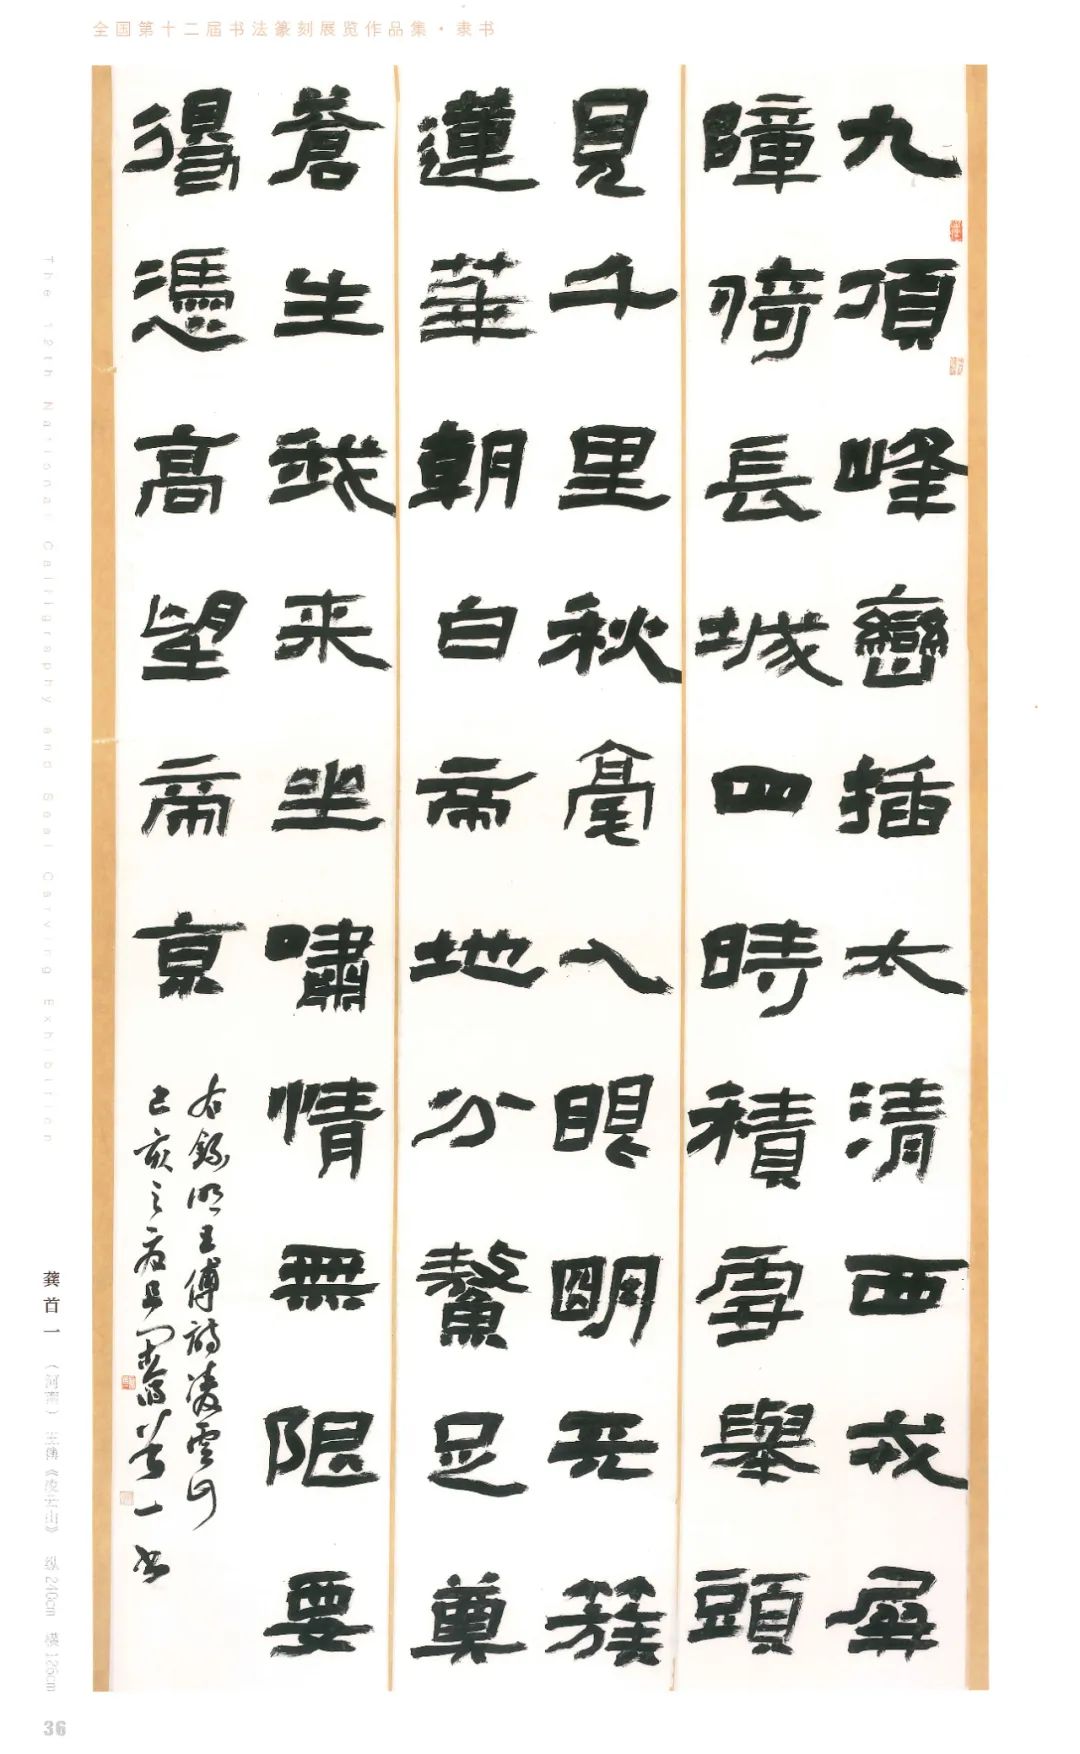 全国第十二届书法篆刻展览作品集·隶书
九頂峰巒插太清西戎屏
障倚長城四時積雪舉頭
見千里秋毫入眼明天簇
蓮華朝白帝地分鰲足奠
蒼生我来坐嘯情無限要
得憑高望帝京
右錄明王傅詩凌雲山
己亥之夏且閒齋首一書
The 12th National Calligraphy and Seal Carving Exhibition
龚首一 (河南) 王傅《凌云山》 纵240cm 横126cm
36